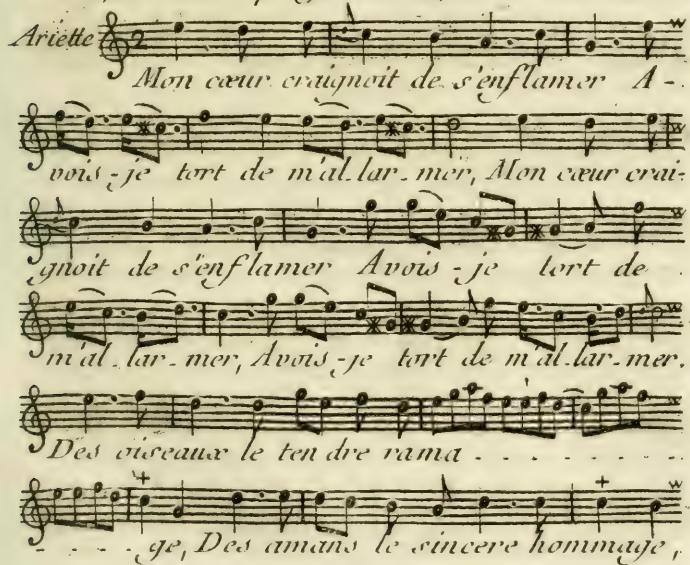 Ariette
Mon cœur craignoit de s'enflamer A-
vois-je tort de m'al-lar-mer, Mon cœur crai-
gnoit de s'enflamer Avois-je tort de
m'al-lar-mer, Avois-je tort de m'al-lar-mer.
Des oiseaux le ten dre rama - - - - - -
- - - - ge, Des amans le sincere hommage,